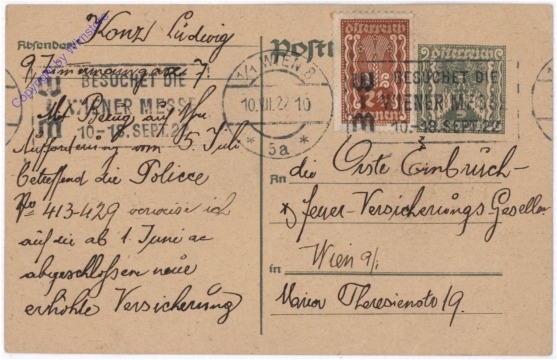 Absender: Konz Ludwig
9/ 7.
Mit Bezug auf Ihre
Aufforderung vom 5 Juli
betreffend die Polizze
No 413-429 verweise ich
auf die ab 1 Juni ac
abgeschlossene neue
erhöhte Versicherung
Copyright by Winstore
BESUCHET DIE
WIENER MESSE
10.-18. SEPT. 22
W M
Postk
1/1 WIEN 8
10.VII.22 10
* 5a *
Österreich
2½
Österreich
W M
BESUCHET DIE
WIENER MESSE
10.-18. SEPT. 22
An die Erste Einbruch-
feuer-Versicherungs Gesellsch
Wien 9/1
in
Maria Theresienstr 19.